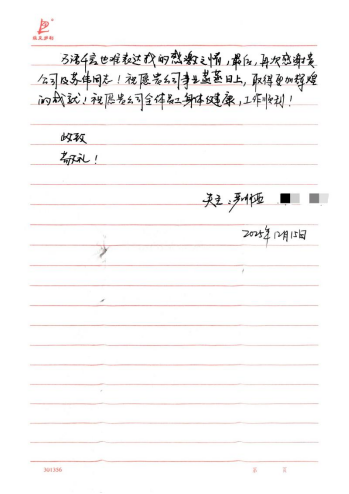 万语千言也难表达我的感谢之情，最后，再次感谢贵
公司及苏伟同志！祝愿贵公司事业蒸蒸日上，取得更加辉煌
的成就！祝愿贵公司全体员工身体健康，工作顺利！
此致
敬礼！
2025年12月15日
301356
第 页